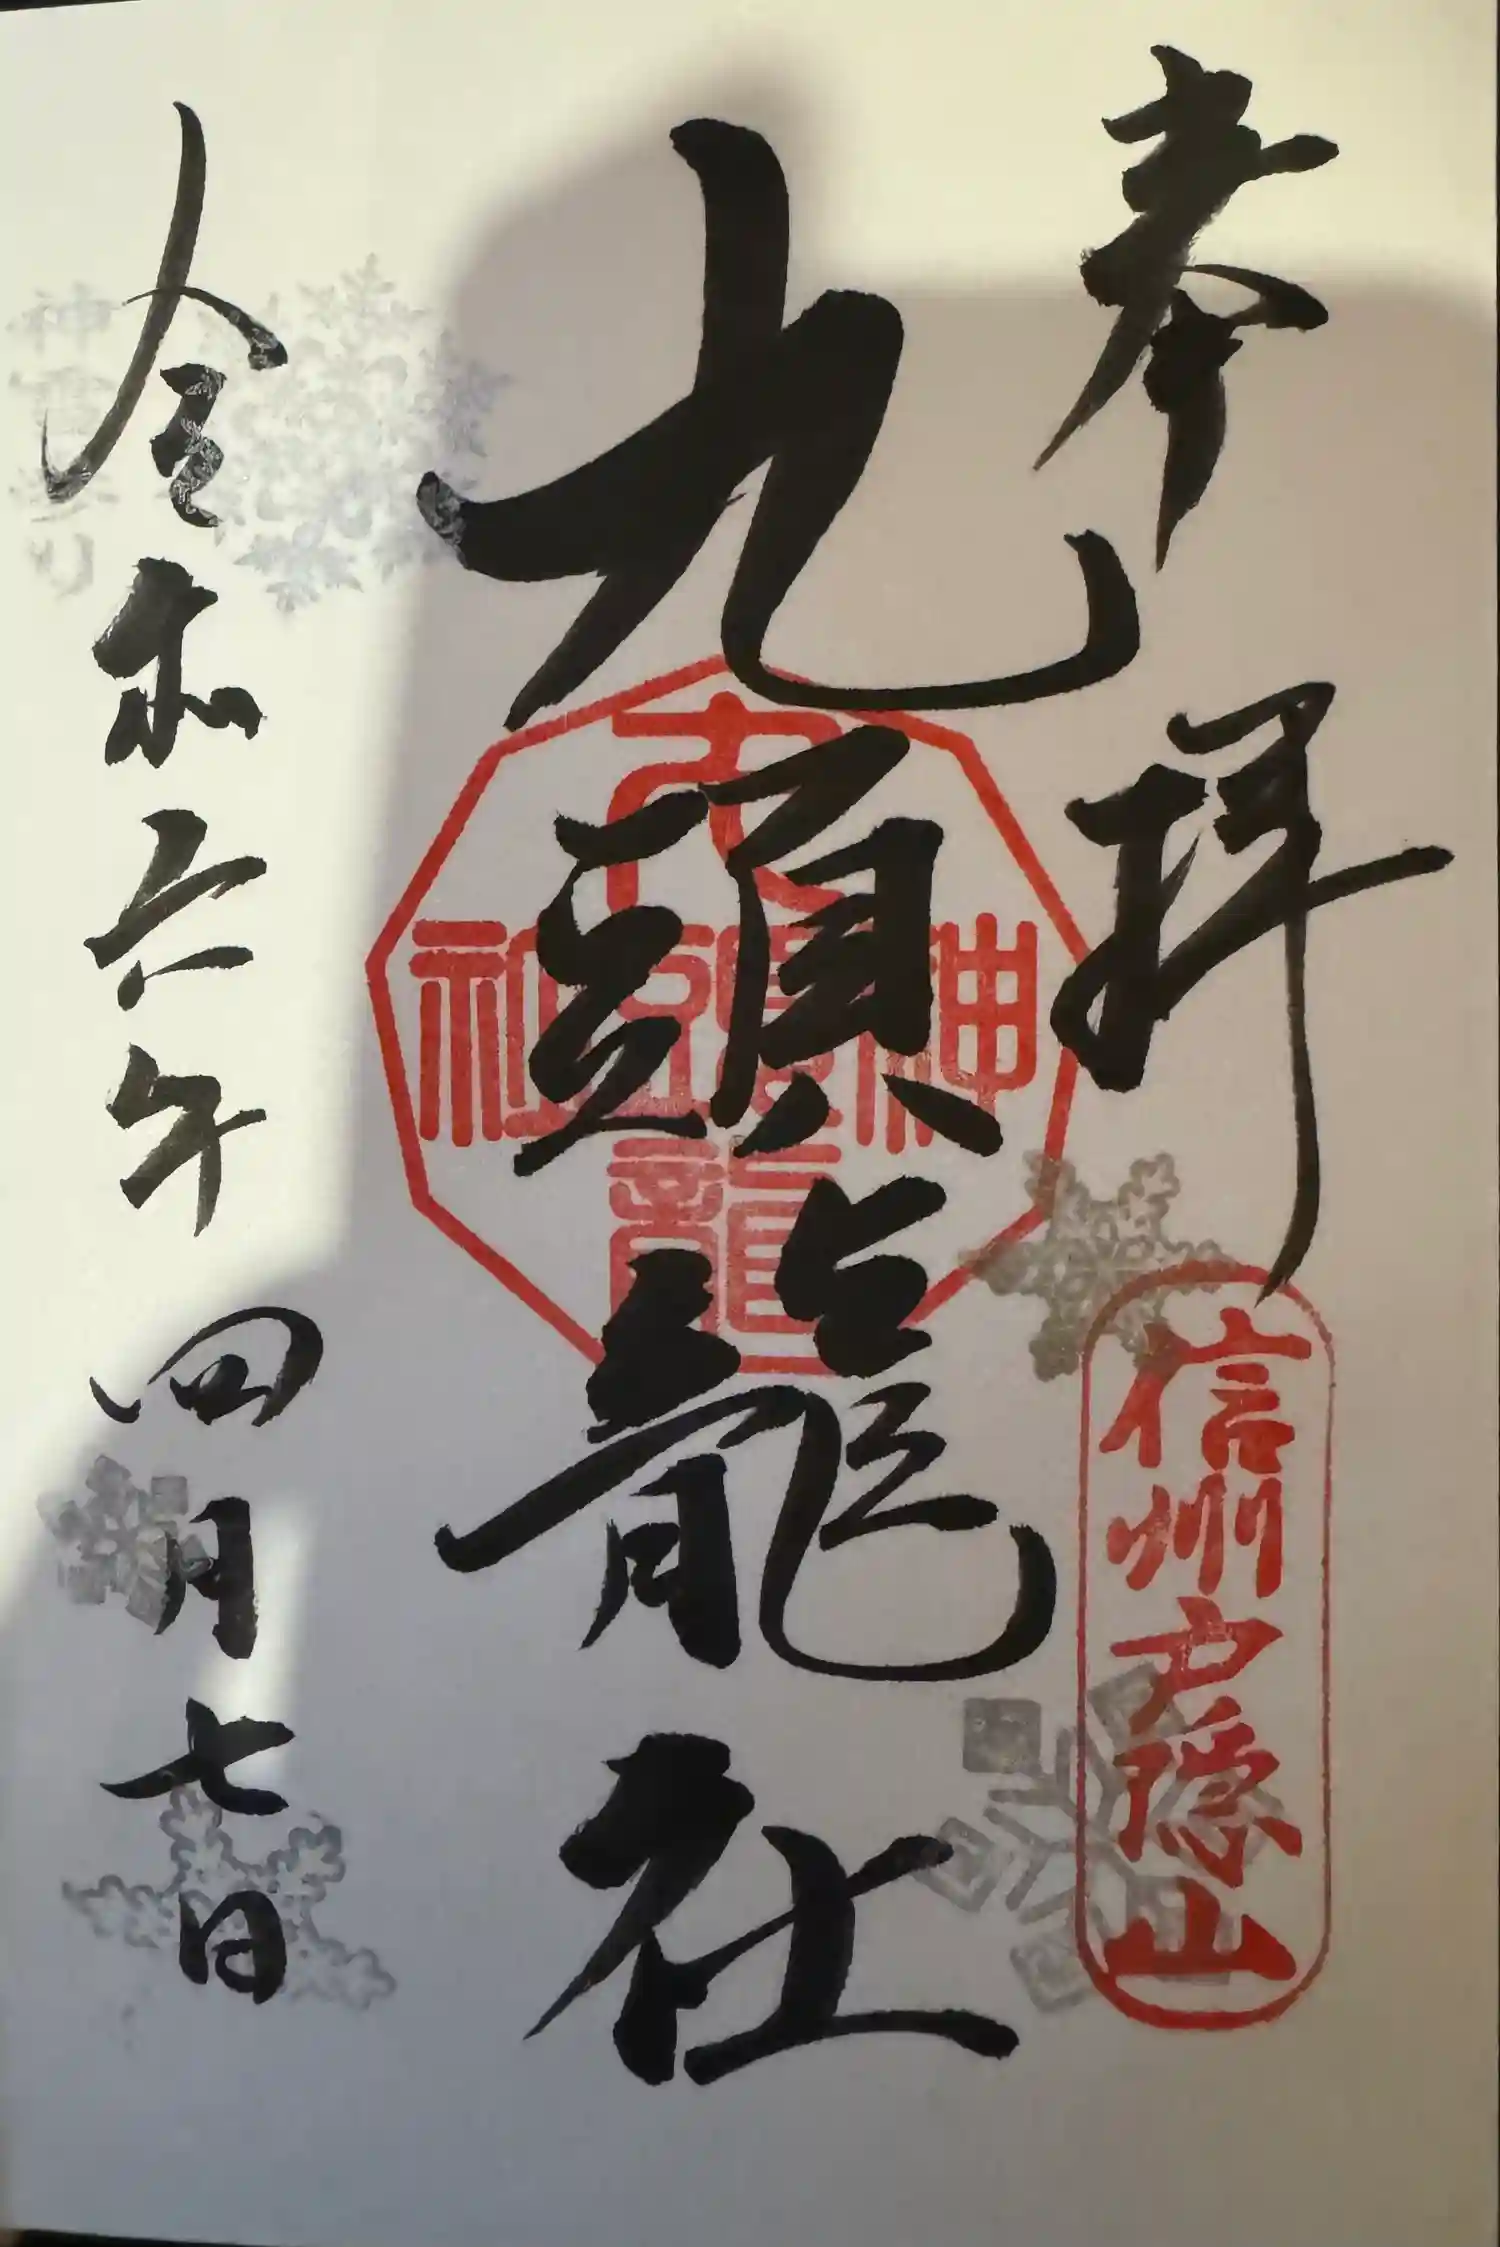 奉拝
信州戸隠山
九頭龍社
九頭龍
神社
令和六年四月七日